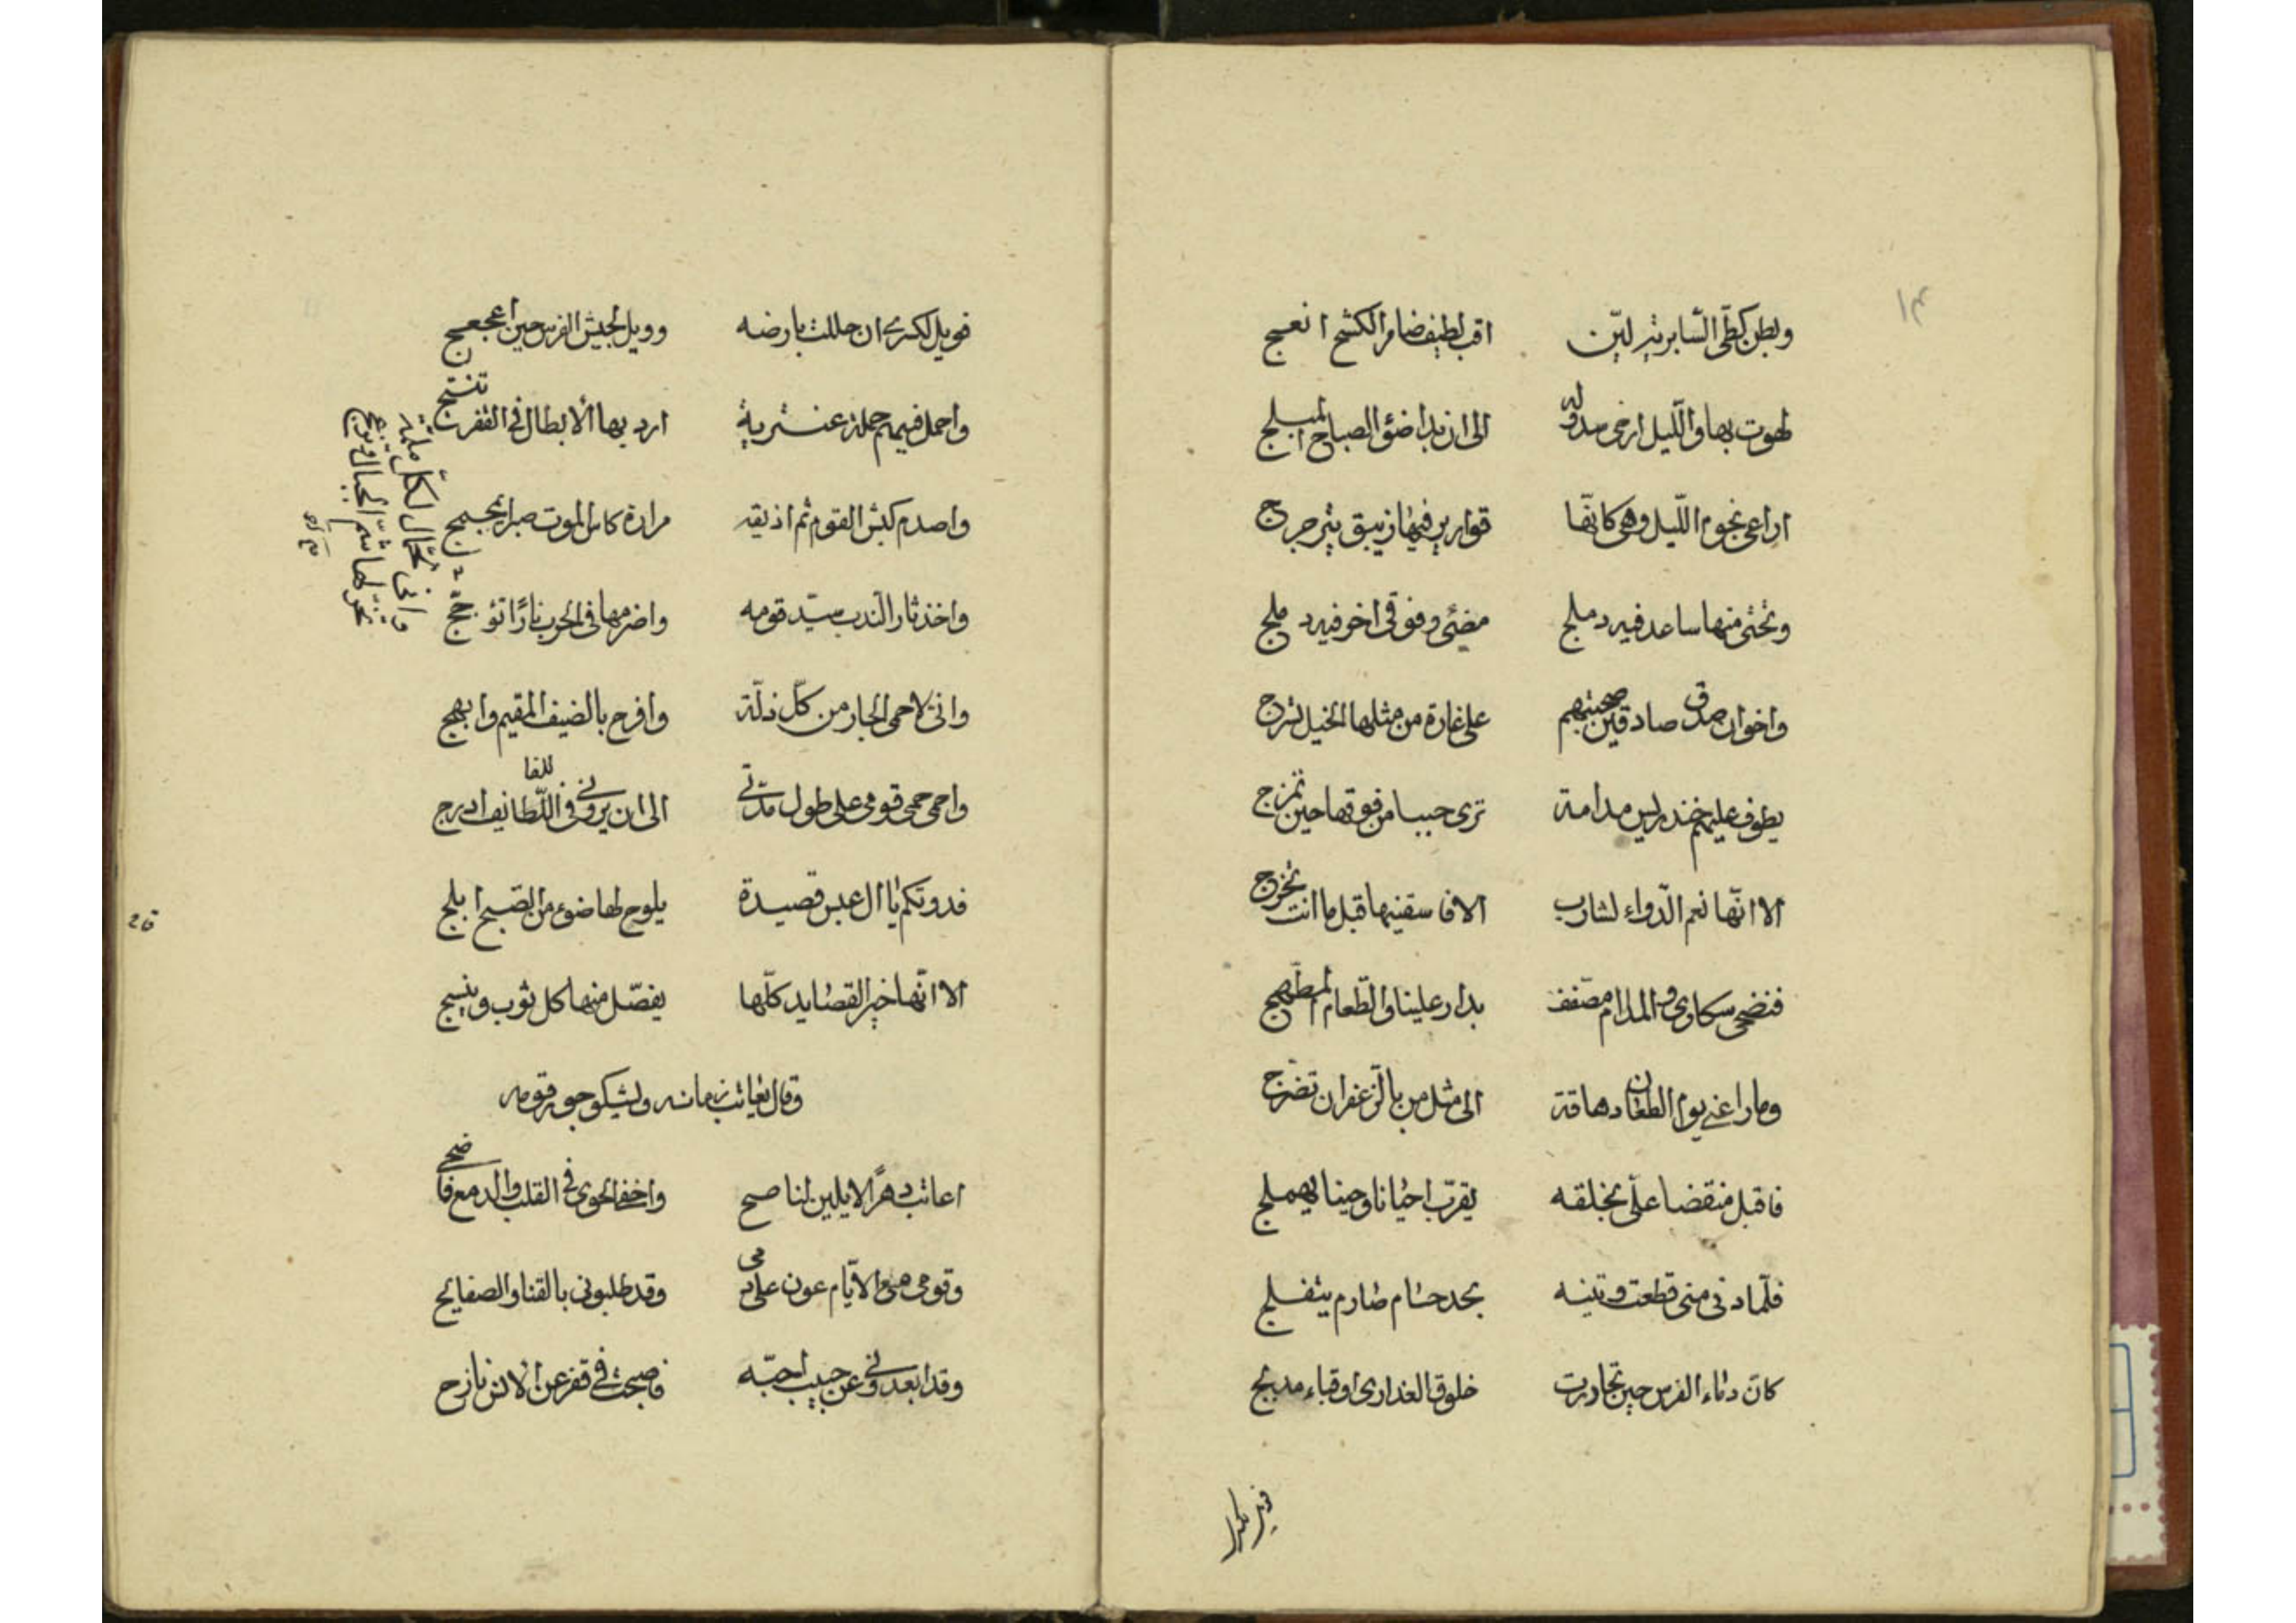 وبطن كطّى السّابريّة ليّن اقب لطيف ضامر الكشح انعج
لهوت بها والّليل ارخى سدوله الى ان بدا ضئو الصباح المبلج
اراعى نجوم اللّيل وهى كانّها قوارير فيها زيبق يترجرج
وتحتى منها ساعد فيه دملج مضئى وفوقى اخر فيه دملج
واخوان صدق صادقين صحبتهم على غارة من مثلها الخيل تسرج
يطوف عليهم خندريس مدامة ترى حببا من فوقها حين تمزج
الا انّها نعم الدّواء لشارب الا فاسقنيها قبل ما انت تخرج
فنضحى سكاوى والمدام مصفف يدار علينا والطّعام المطهج
وما راعنى يوم الطعان دهاقة الى مثل من بالزعفران تضرج
فاقبل منقضا علّى بخلقه يقرّب احيانا وحينا يهملج
فلّما دنى منى قطعت وتينه بحد حسام صارم يتفلج
كان دماء الفرس حين تحادرت خلوق العذارى او قباء مدبج
فويل لكسرى
١٣
فويل لكسرى ان حللت بارضه وويل لجيش الفرس حين اعجعج
واحمل فيهم حملة عنترية ارد بها الابطال فى القفر تنتج
واصدم كبش القوم ثم اذيقه مرارة كاس الموت صبرا يجمج
واخذ ثار الندب سيّد قومه واضرمها فى الحرب نارًا تؤجّج
وانى لاحمى الجار من كلّ ذلّة وافرح بالضيف المقيم وابهج
واحمى حمى قومى على طول مدّتى الى ان يرونى فى اللّفايف ادرج
فدونكم يا ال عبس قصيدة يلوح لها ضوء من الصّبح ابلج
الا انّها خير القصايد كلّها يفصّل منها كل ثوب وينسج
وقال يعاتب زمانه ويشكو جور قومه
اعاتب دهرًا لا يلين لناصح واخفى الجوى فى القلب والدمع فاضحى
وقومى مع الايّام عون على دمى وقد طلبونى بالقنا والصفايح
وقد ابعدونى عن حبيب احبّه فاصبحت فى قفر عن الانس نازح
وانى لحمّال لكلّ ملمّة
تخرّ لها شمّ الجبال وتزعج
26